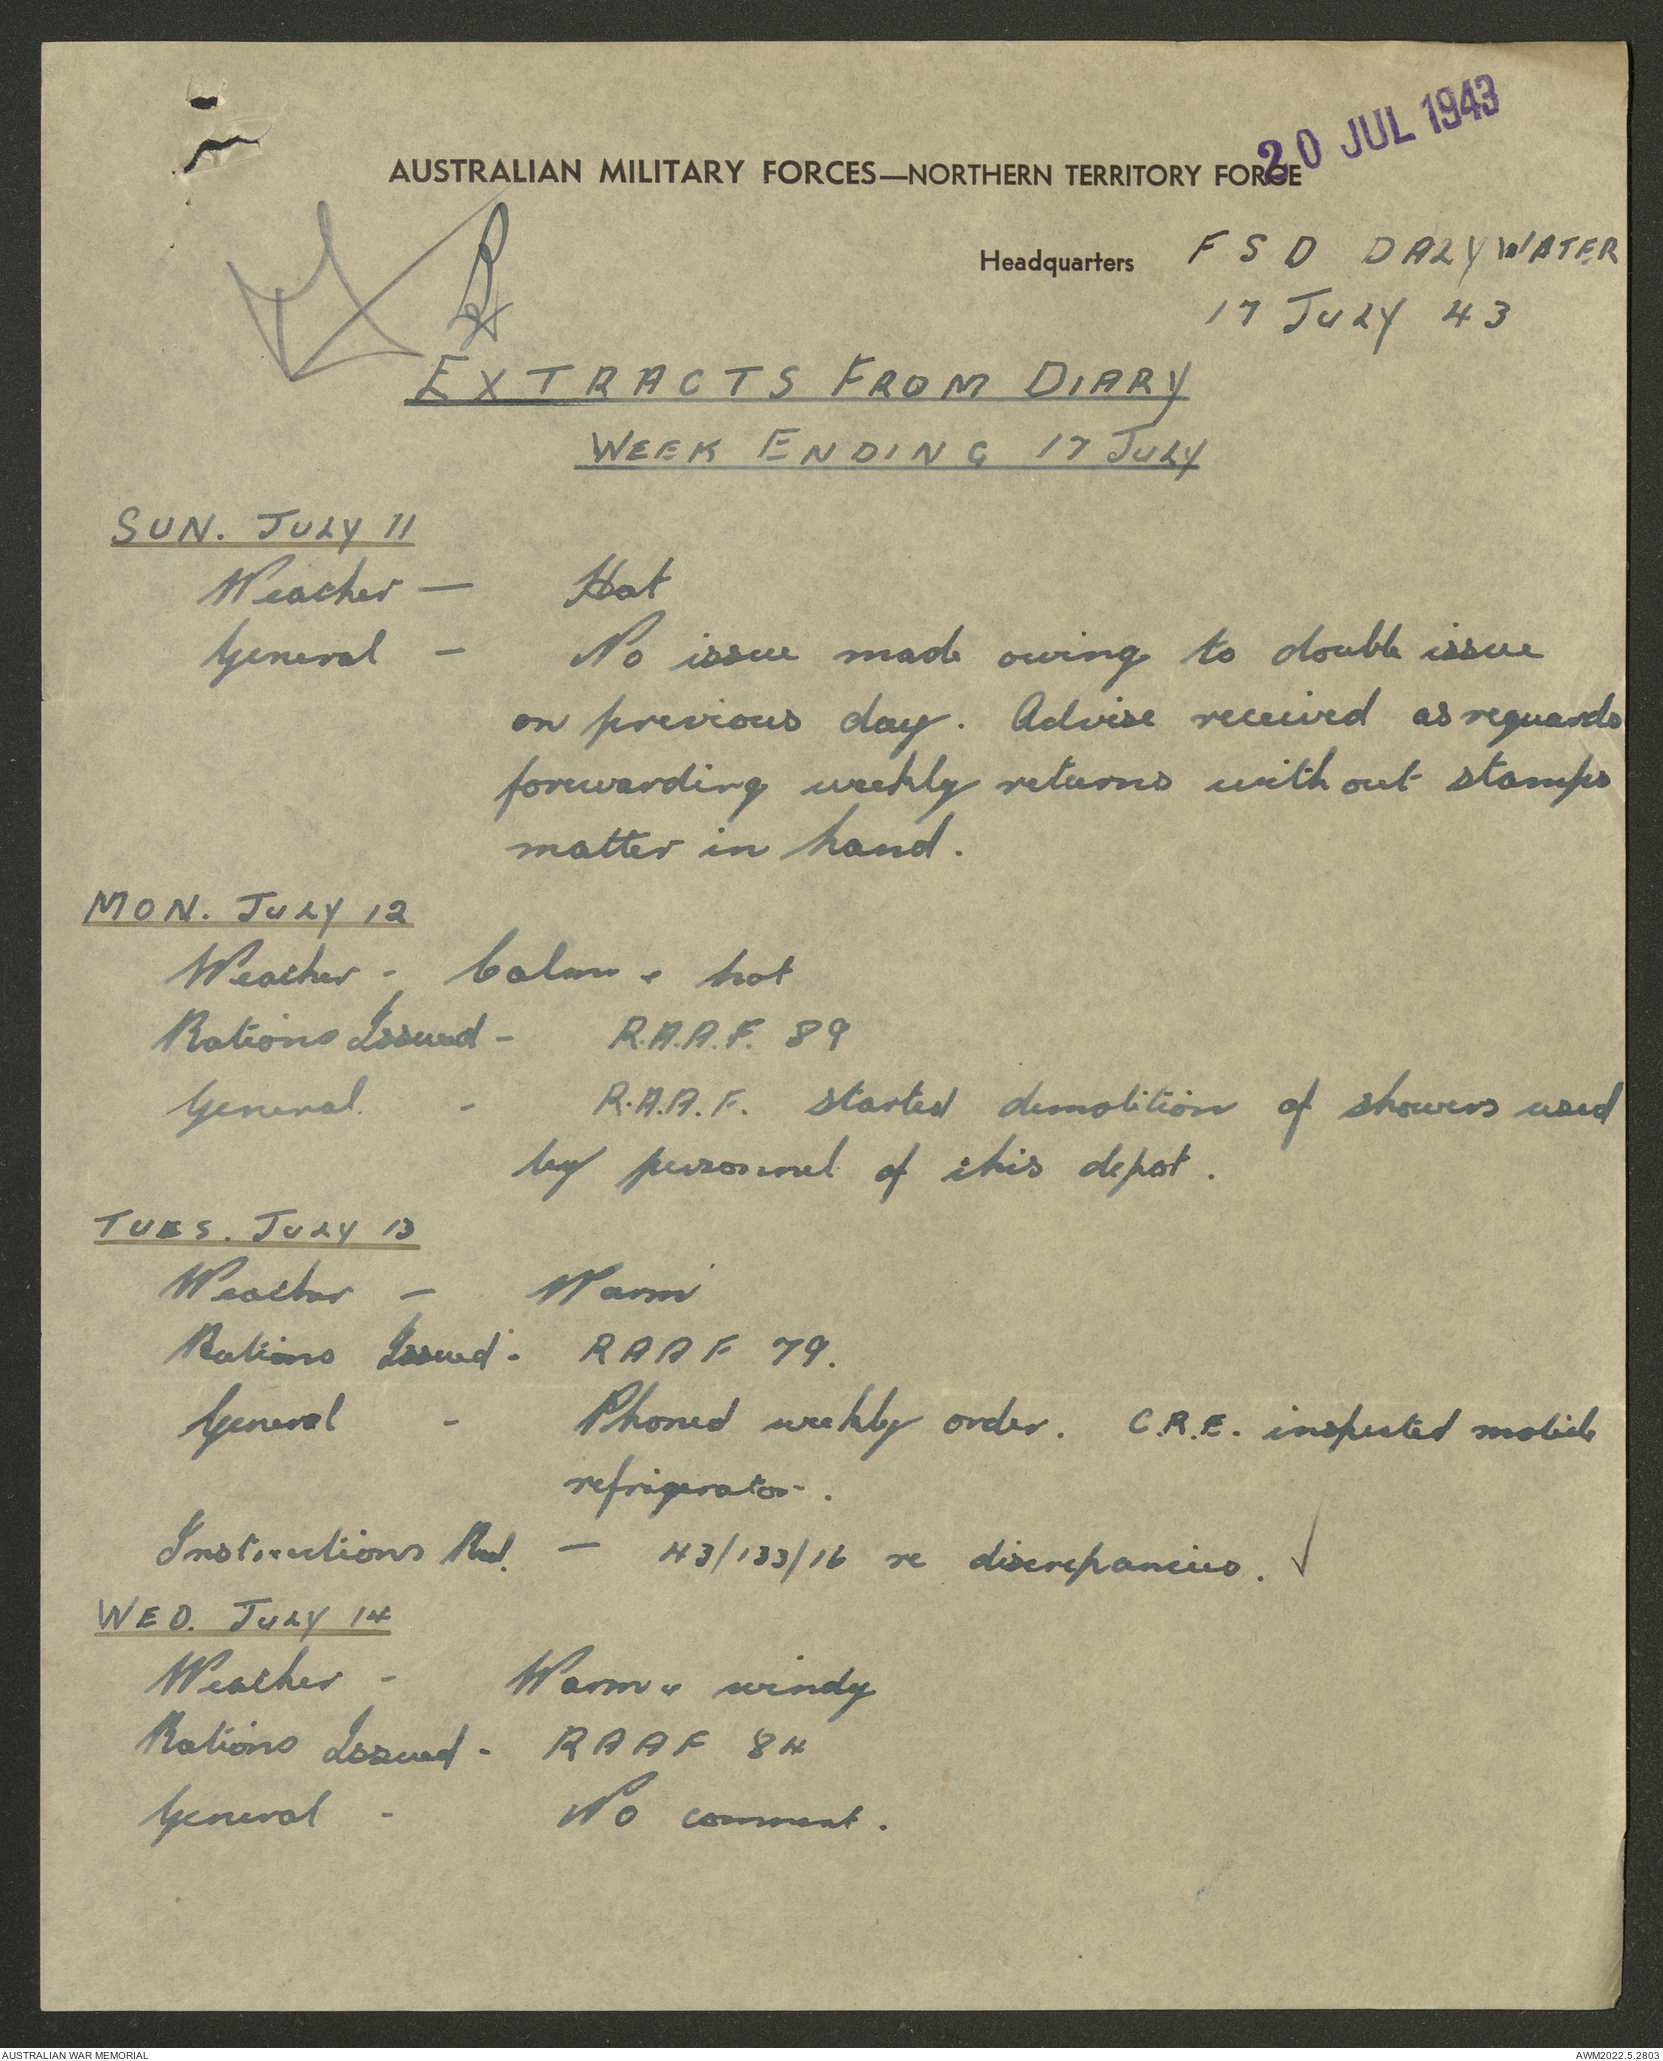 20 JUL 1943
AUSTRALIAN MILITARY FORCES—NORTHERN TERRITORY FORCE
Headquarters F S D DALYWATER
17 July 43
EXTRACTS FROM DIARY
WEEK ENDING 17 JULY
SUN. JULY 11
Weather — Hot
General - No issue made owing to double issue
on previous day. Advise received as reguards
forewarding weekly returns without stamps
matter in hand.
MON. JULY 12
Weather - Calm & hot
Rations Issued - R.A.A.F. 89
General - R.A.A.F. started demolition of showers used
by personnel of this depot.
TUES. JULY 13
Weather - Warm
Rations Issued - RAAF 79.
General - Phoned weekly order. C.R.E. inspected mobile
refrigerator.
Instructions Recd. - 43/133/16 re discrepancies.
WED. JULY 14
Weather - Warm & windy
Rations Issued - RAAF 84
General - No comment.
AUSTRALIAN WAR MEMORIAL
AWM2022.5.2803